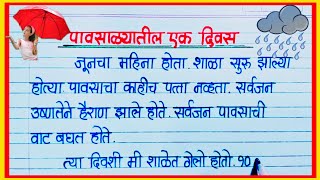 पावसाळ्यातील एक दिवस
जूनचा महिना होता. शाळा सुरु झाल्या
होत्या पावसाचा काहीच पत्ता नव्हता. सर्वजन
उष्णतेने हैराण झाले होते. सर्वजन पावसाची
वाट बघत होते.
त्या दिवशी मी शाळेत गेलो होतो. १०